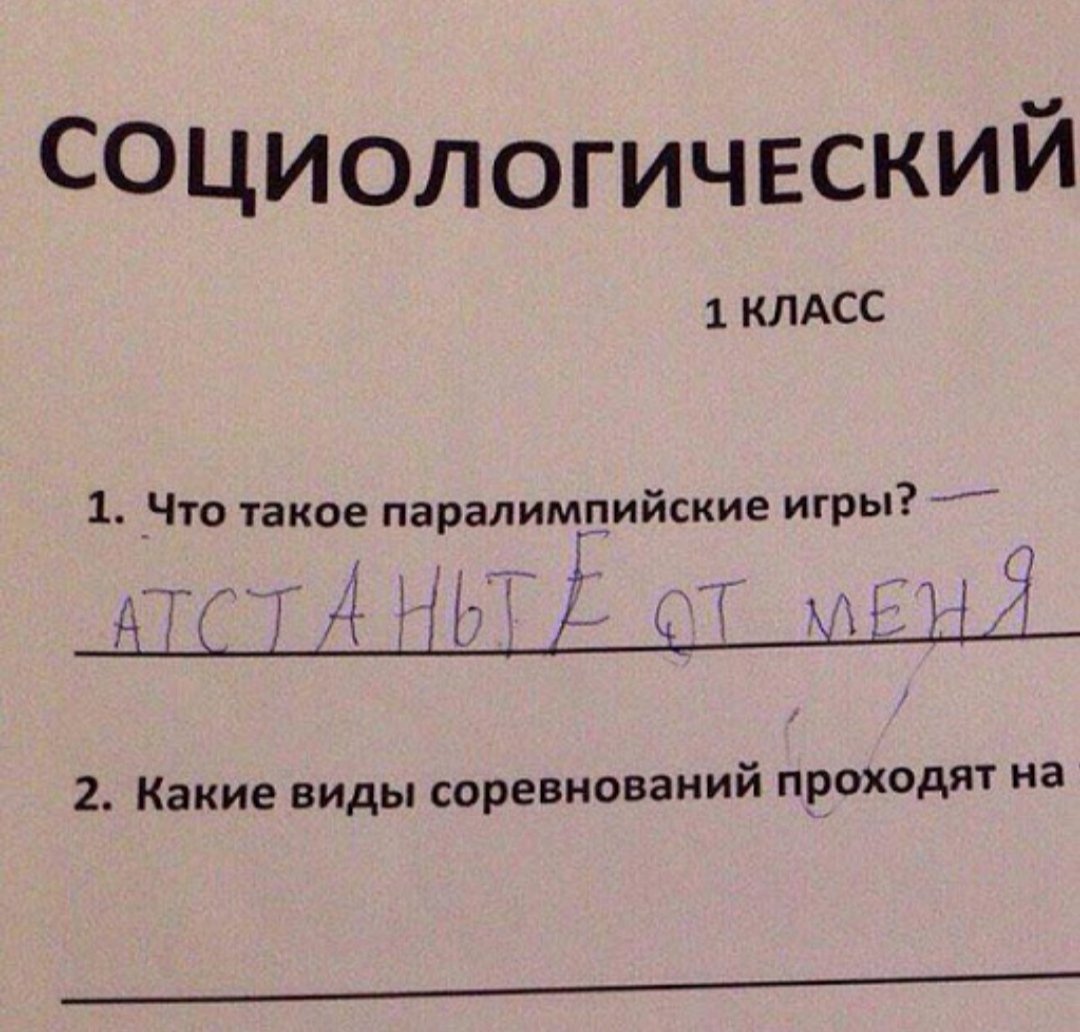 СОЦИОЛОГИЧЕСКИЙ
1 КЛАСС
1. Что такое паралимпийские игры? —
АТСТАНЬТЕ ОТ МЕНЯ
2. Какие виды соревнований проходят на